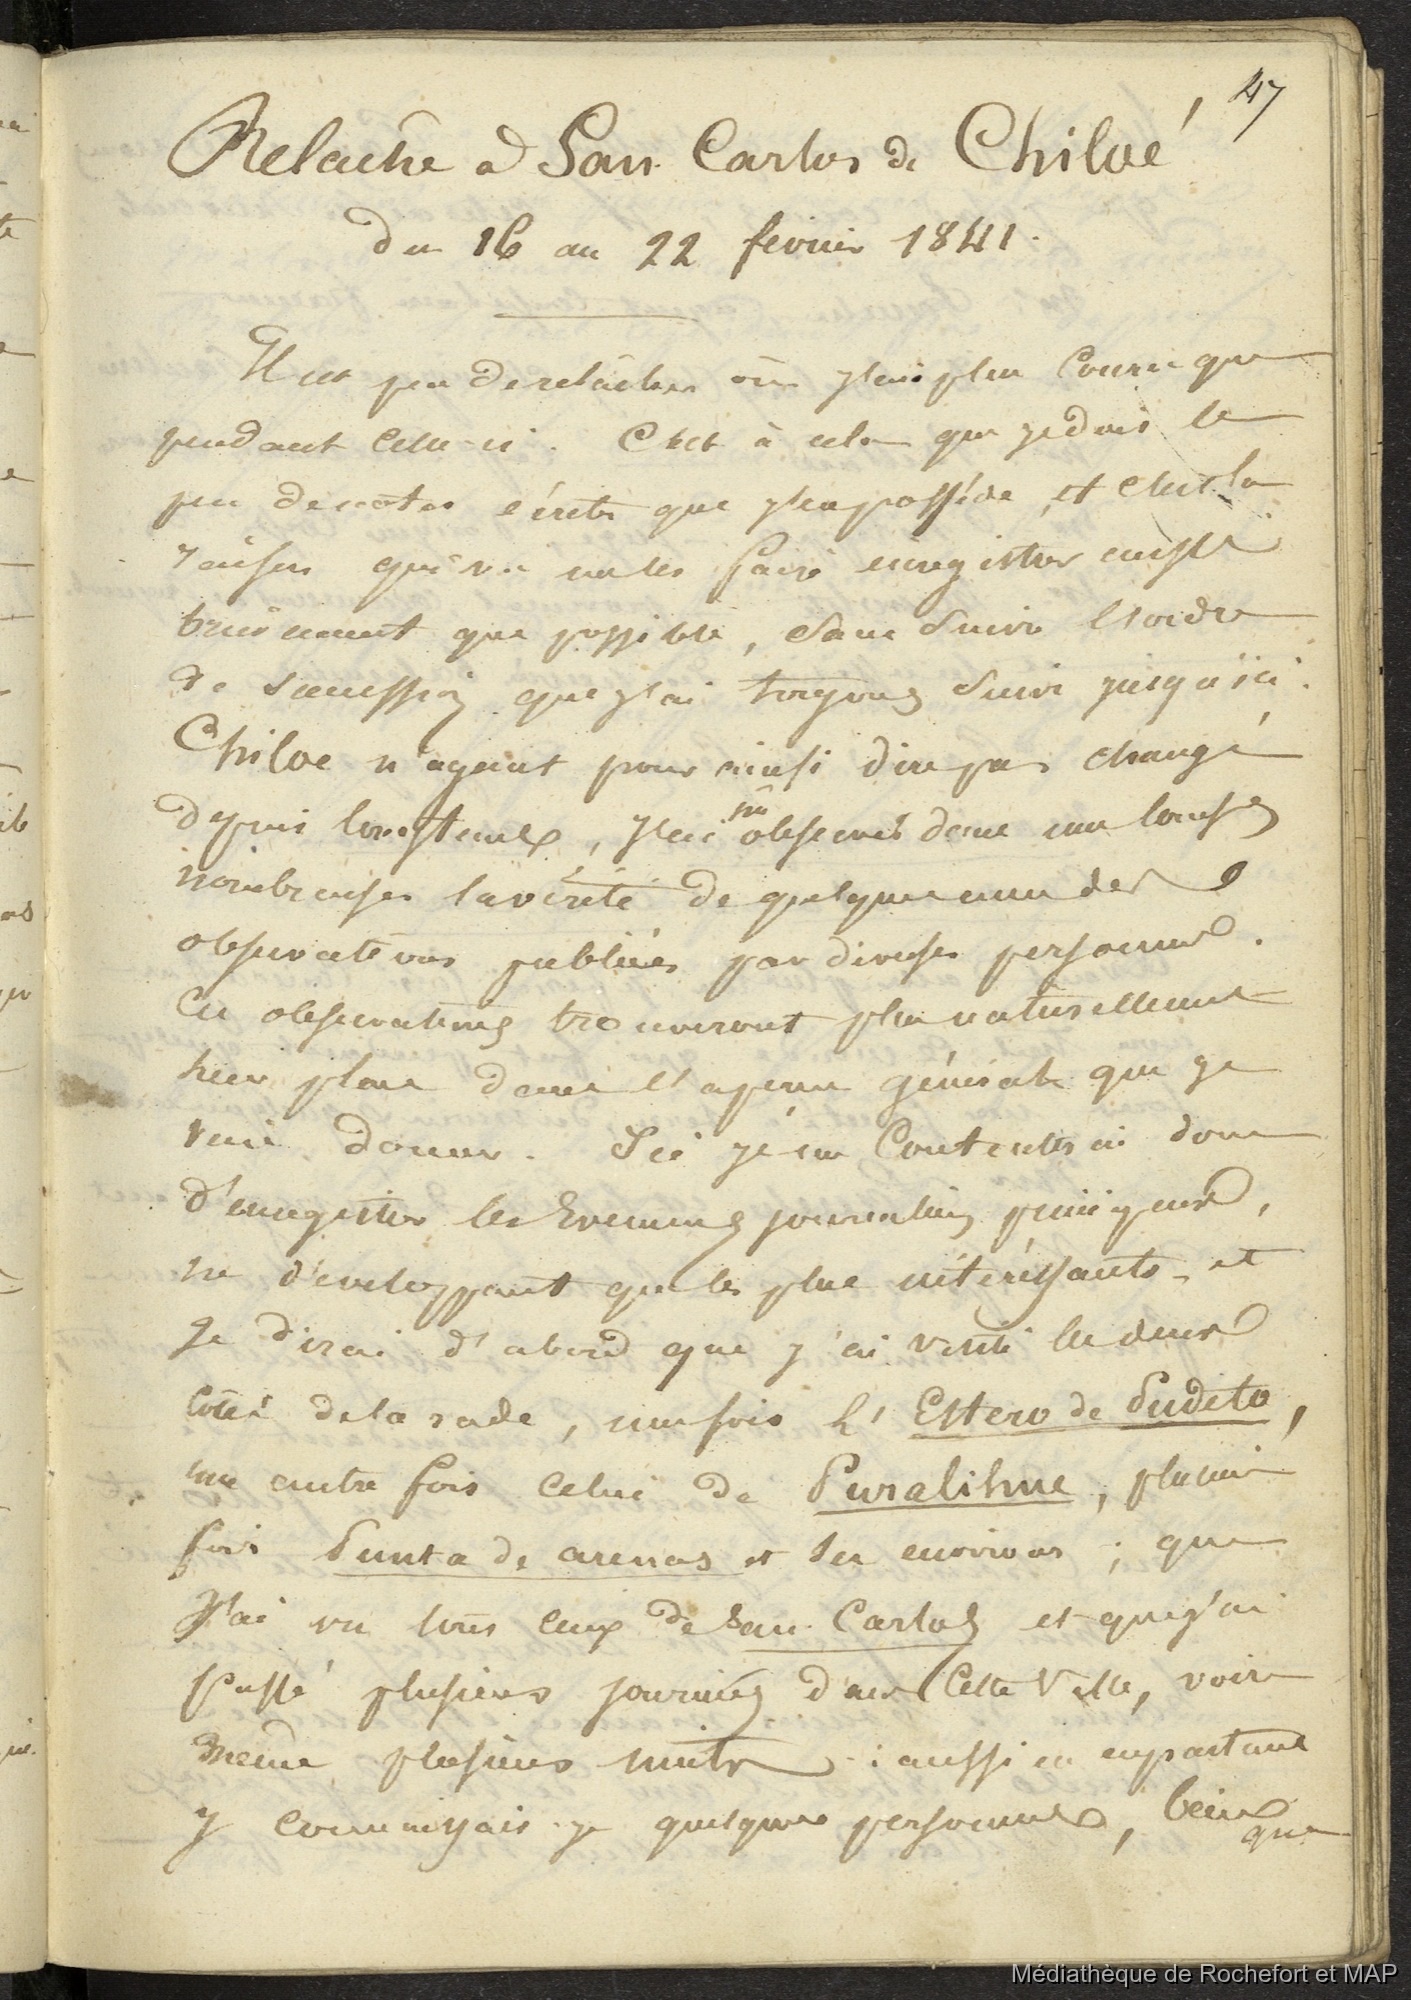 47
Relache à San Carlos de Chiloé
du 16 au 22 février 1841.
Il est peu de relâches où j'ai plus couru que
pendant celle-ci. C'est à cela que je dois le
peu de notes écrites que j'en possède, et c'est la
raison qui va me les faire enregistrer aussi
brièvement que possible, sans suivre l'ordre
de succession que j'ai toujours suivi jusqu'ici.
Chiloe n'ayant pour ainsi dire pas changé
depuis longtemps, j'ai pu observer dans mes courses
nombreuses la vérité de quelques unes des
observations publiées par diverses personnes.
Ces observations trouveront plus naturellement
leur place dans l'aperçu générale que je
vais donner. Ici je me contenterai donc
d'enregistrer les Evenements journaliers,
ne développant que les plus intéréssants - et
Je dirai d'abord que j'ai visité les deux
côtés de la rade, une fois l'Estero de Pudeto,
une autre fois celui de Puralihue, plusieurs
fois Punta de arenas et ses environs ; que
J'ai vu tous ceux de San Carlos et que j'ai
passé plusieurs journées dans cette ville, voire
même plusieurs nuits : aussi en en partant
y connaissais-je quelques personnes, bien
que
Médiathèque de Rochefort et MAP